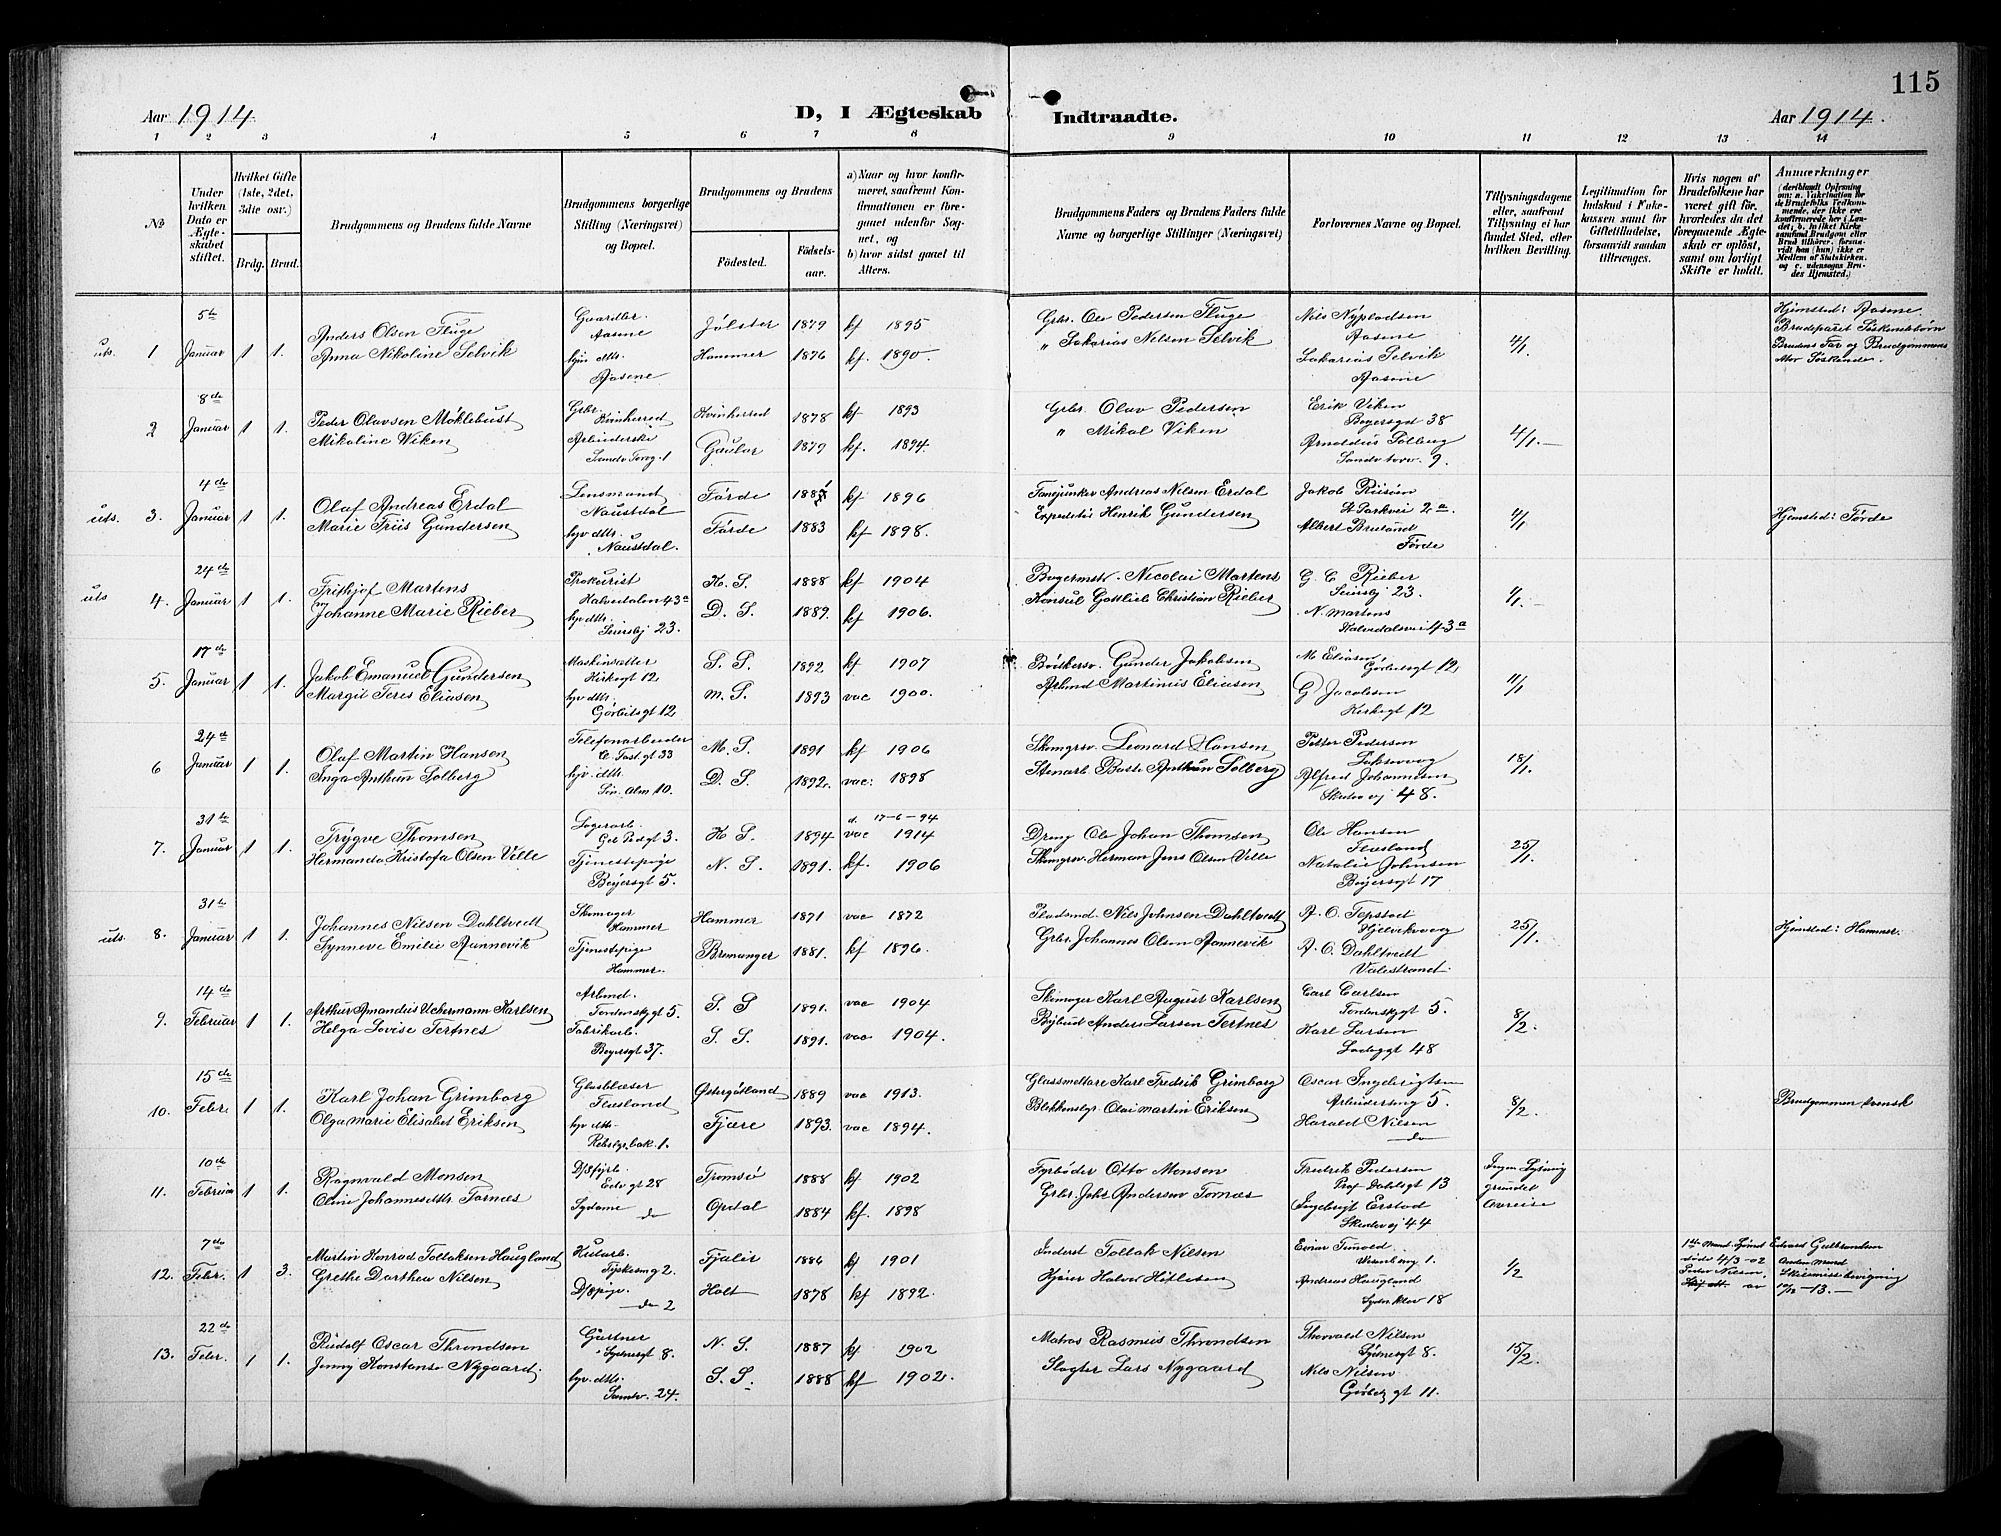 115
Aar 1914. D, I Ægteskab Indtraadte. Aar 1914.
1 2 3 4 5 6 7 8 9 10 11 12 13 14
No
Under hvilken Dato er Ægteskabet stiftet.
Hvilket Gifte (1ste, 2det, 3die osv.)
Brdg. Brud.
Brudgommens og Brudens fulde Navne
Brudgommens borgerlige Stilling (Næringsvei) og Bopæl.
Brudgommens og Brudens
Fødested. Fødselsaar.
a) Naar og hvor konfirmeret, saafremt Konfirmationen er foregaaet udenfor Sognet, og
b) hvor sidst gaaet til Alters.
Brudgommens Faders og Brudens Faders fulde Navne og borgerlige Stillinger (Næringsvei)
Forlovernes Navne og Bopæl.
Tillysningsdagene eller, saafremt Tillysning ei har fundet Sted, efter hvilken Bevilling.
Legitimation for Indskud i Enkekassen samt for Giftetilladelse, forsaavidt saadan tiltrænges.
Hvis nogen af Brudefolkene har været gift før, hvorledes da det foregaaende Ægteskab er opløst, samt om lovligt Skifte er holdt.
Anmærkninger
uts. 1 5te Januar 1 1.
Anders Olsen Fluge
Anna Nikoline Selvik
Gaardbr. Aasene
hjv. dtts. Aasene
Jølster 1879 kf 1895
Hammer 1876 kf. 1890.
Grbr. Ole Pedersen Fluge
" Sakarias Nielsen Selvik
Aasene
Sakarias Selvik
Aasene
4/1.
Hjemsted: Aasene.
Brudeparet Søskenebørn
Brudens Far og Brudgommens
Mor Søskende.
2 8de Januar 1 1.
Peder Olavsen Møklebust
Mikaline Viken
Grbr. Kvinherred
Arbeiderske
Sandv. Torvg. 1
Kvinherred 1878 kf 1893
Gaular 1879 kf. 1894.
Grbr. Olav Pedersen
" Mikal Viken
Erik Viken
Beyersgd 38
Arnoldus Solberg
Sandv. torv. 9.
4/1.
uts. 3. 4de Januar 1 1.
Olaf Andreas Erdal
Marie Friis Gundersen
Lensmand
Naustdal
hjv dtts. Naustdal.
Førde kf 1896
Førde 1883 kf 1898.
Fanejunker Andreas Nilsen Erdal
Expeditör Henrik Gundersen
Jakob
St Parkvei 2 a.
Albert Bruland
Førde
4/1
Hjemsted: Førde
uts 4. 24de Januar 1 1.
Frithjof Martens
Johanne Marie Rieber
Prokurist
Kalvedalen 43 a
hjv dtts. 23.
K. S. 1888 kf 1904
D. S. 1889. kf 1906.
Bagermstr. Nicolai Martens
Konsul Gottlieb Christian Rieber
G. C. Rieber
23.
N. Martens
Kalvedalsvei 43 a
4/1.
5. 17de Januar 1 1.
Jakob Emanuel Gundersen
Margit Teres Eliasen
Maskinsætter
Kirkegt 12
hjv dtts. Gørbitsgt 12
S. P. 1892 kf 1907
M. S. 1893 vac 1900.
Bødkersv. Gunder Jakobsen
Arbmd Martinus Eliasen
M Eliasen,
Gørbitsgt 12
G Jacobsen
Kirkegt 12
11/1
6 24de Januar 1 1.
Olaf Martin Hansen
Inga Anthun Solberg
Telefonarbeider
C. Fast. gt 33
hjv. dtts. Sin. Alm 10.
M. S. 1891 kf 1906
D. S. 1892. vac: 1898
Skomgrsv. Leonard Hansen
Stenarb. Baste Anthun Solberg
Petter Pedersen
Laksevaag
Alfred Johannesen
Skutev vj 48.
18/1.
7. 31te Januar 1 1.
Trygve Thomsen
Hermanda Kristofa Olsen Velle
Lagerarb.
Geb. Prstgt 3.
Tjenestepige
Beyersgt 5.
K S. 1894 d. 17-6-94 vac 1914
N. S. 1891. kf. 1906
Dreng Ole Johan Thomsen
Skomgrsv. Herman Jens Olsen Velle
Ole Hansen
Flæsland
Natalie Johnsen
Beyersgt 17
25/1.
uts. 8. 31te Januar 1 1.
Johannes Nilsen Dahltvedt
Synneve Emilie Rannevik
Skomager
Hammer
Tjenestepige
Hammer.
Hammer 1871 vac 1872
Bremanger 1881. kf 1896.
Pladsmd. Nils Johnsen Dahltvedt
Grbr. Johannes Olsen Rannevik
A. O.
Hjelvikvaag
A. O. Dahltvedt
Valestrand.
25/1.
Hjemsted: Hammer.
9. 14de Februar 1 1.
Arthur Amandus Uchermann Karlsen
Helga Lovise Tertnes
Arbmd.
Tordenskj gt 5.
Fabrikarb.
Beyersgt 37.
S. S 1891. vac 1904
S. S. 1891. vac 1904.
Skomager Karl August Karlsen
Bybud Anders Larsen Tertnes
Carl Carlsen
Tordenskj gt 5.
Karl Larsen
Ladeggt 48
8/2.
10. 15de Febr. 1 1.
Karl Johan Grimborg
Olga Marie Elisabet Eriksen
Glasblæser
Flæsland
hjv dtts. Rebslgr bak. 1.
Østergötland 1889 vac 1913.
Fjære 1893. vac 1894.
Glassmeltare Karl Fredrik Grimborg
Blikkenslgr. Olai Martin Eriksen
Oscar Ingebrigtsen
Arbeidereng 5.
Harald Nilsen
do
8/2.
Brudgommen svensk
11. 10de Februar 1 1.
Ragnvald Monsen
Oline Johannesdtr. Tornæs
D/sfyrb.
Edv gt 28
Sydame do
Tromsø 1888 kf 1902
Opdal 1884 kf. 1898
Fyrbøder Otto Monsen
Grbr. Johs Andersen Tornæs
Fredrik Pedersen
Prof Dahlsgt 13
Ingebrigt Erstad
Skutev vj 44
Ingen Lysning
grundet
Avreise
12. 7de Febr. 1 3.
Martin Konrad Tollaksen Haugland
Grethe Dorthea Nilsen
Kularb.
Tyskesmg 2.
D/spige. do 2
Fjaler 1886 kf 1901
Holt 1878 kf 1892.
Inderst Tollak Nilsen
Kjører Halvor Hitlesen
Einar Timold
1.
Andreas Haugland
Sydn. klev 18
1/2
1ste Mand: Sømd Edvard Gulbrandsen
døde 4/3-02 Anden Mand
Peder Nilsen, Skilsmissebevigning
av 19/12-13.
13. 22de Febr. 1 1.
Rudolf Oscar Throndsen
Jenny Konstanse Nygaard.
Gartner
Sydnesgt 8.
hjv. dtts. Sandv. 24.
N. S. 1887 kf 1902
S. S. 1888 kf 1902.
Matros Rasmus Throndsen
Slagter Lars Nygaard
Thorvald Nilsen
Sydnesgt 8.
Nils Nilsen
Gørbitz gt 11.
15/2.